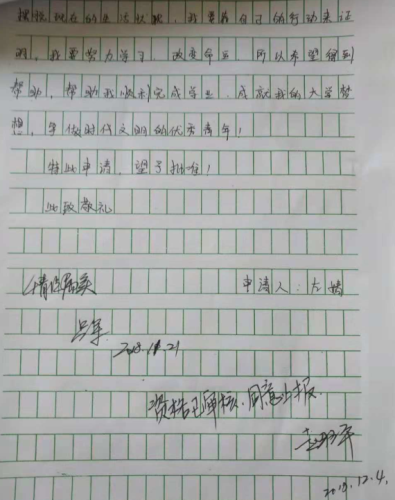 摆脱现在的生活状况，我要靠自己的行动来证
明，我要努力学习，改变命运，所以希望得到
帮助，帮助我顺利完成学业，成就我的大学梦
想，争做时代文明的优秀青年！
特此申请，望予批准！
此致敬礼
情况属实
申请人：左
2019.11.21
资格已审核，同意上报.
2019.12.4.